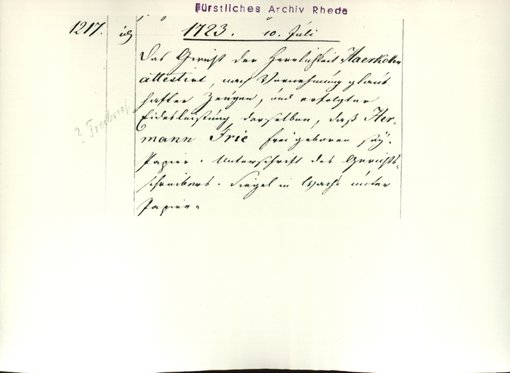 Fürstliches Archiv Rhede
1217. 1723. 10. Juli
Das Gericht der Herrlichkeit Haerkelen
attestirt, nach Vernehmung glaub
hafter Zeugen, und erfolgter
Eidesleistung derselben, daß Her-
mann Frie frei geboren sey.
Papier. Unterschrift des Gerichts-
schreibers. Siegel in Wachs unter
Papier.